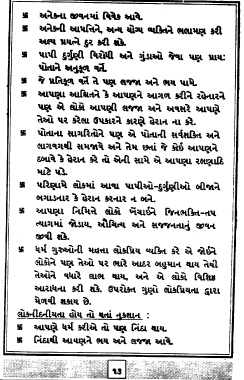 卐 અનેકના જીવનમાં વિવેક આવે.
卐 અનેકની આપત્તિને, અન્ય યોગ્ય વ્યક્તિને ભલામણ કરી
અલ્પ પ્રયત્ને દુર કરી શકે.
卐 પાપી દુર્ગુણી વિરોધી અને ગુંડાઓ જેવા પણ પ્રાયઃ
પોતાને અનુકૂળ વર્તે.
卐 જે પ્રતિકૂળ વર્તે તે પણ લજ્જા અને ભય પામે.
卐 આપણા આશ્રિતને કે આપણને આગળ કરીને રહેનારને
પણ એ લોકો આપણી લજ્જા અને અવસરે આપણે
તેઓ પર કરેલા ઉપકારને કારણે હેરાન ના કરે.
卐 પોતાના સાગરિતોને પણ એ પોતાની સર્વશક્તિ અને
લાગવગથી સમજાવે અને તેમ છતાં જે કોઈ આપણને
દબાવે કે હેરાન કરે તો એની સામે એ આપણા રક્ષણાદિ
માટે પડે.
卐 પરિણામે લોકમાં આવા પાપીઓ-દુર્ગુણીઓ બીજાને
બગાડનાર કે હેરાન કરનાર ન બને.
卐 આપણા નિમિત્તે લોકો ખેંચાઈને જિનભક્તિ-તપ
ત્યાગમાં જોડાય, ઔચિત્ય અને સજ્જનતાનું જીવન
જીવી શકે.
卐 ધર્મ ગુરુઓની મહત્તા લોકપ્રિય વ્યક્તિ કરે એ જોઈને
લોકોને પણ તેઓ પર ભારે આદર બહુમાન થાય તેથી
તેઓને વધારે લાભ થાય, અને એ લોકો વિશિષ્ટ
આરાધના કરી શકે. ઉપરોક્ત ગુણો લોકપ્રિયતા દ્વારા
મેળવી શકાય છે.
લોકનીન્દનીયતા હોય તો થતાં નુકશાન :
卐 આપણે ધર્મ કરીએ તો પણ નિંદા થાય.
卐 નિંદાથી આપણને ભય અને લજ્જા આવે.
૧૩